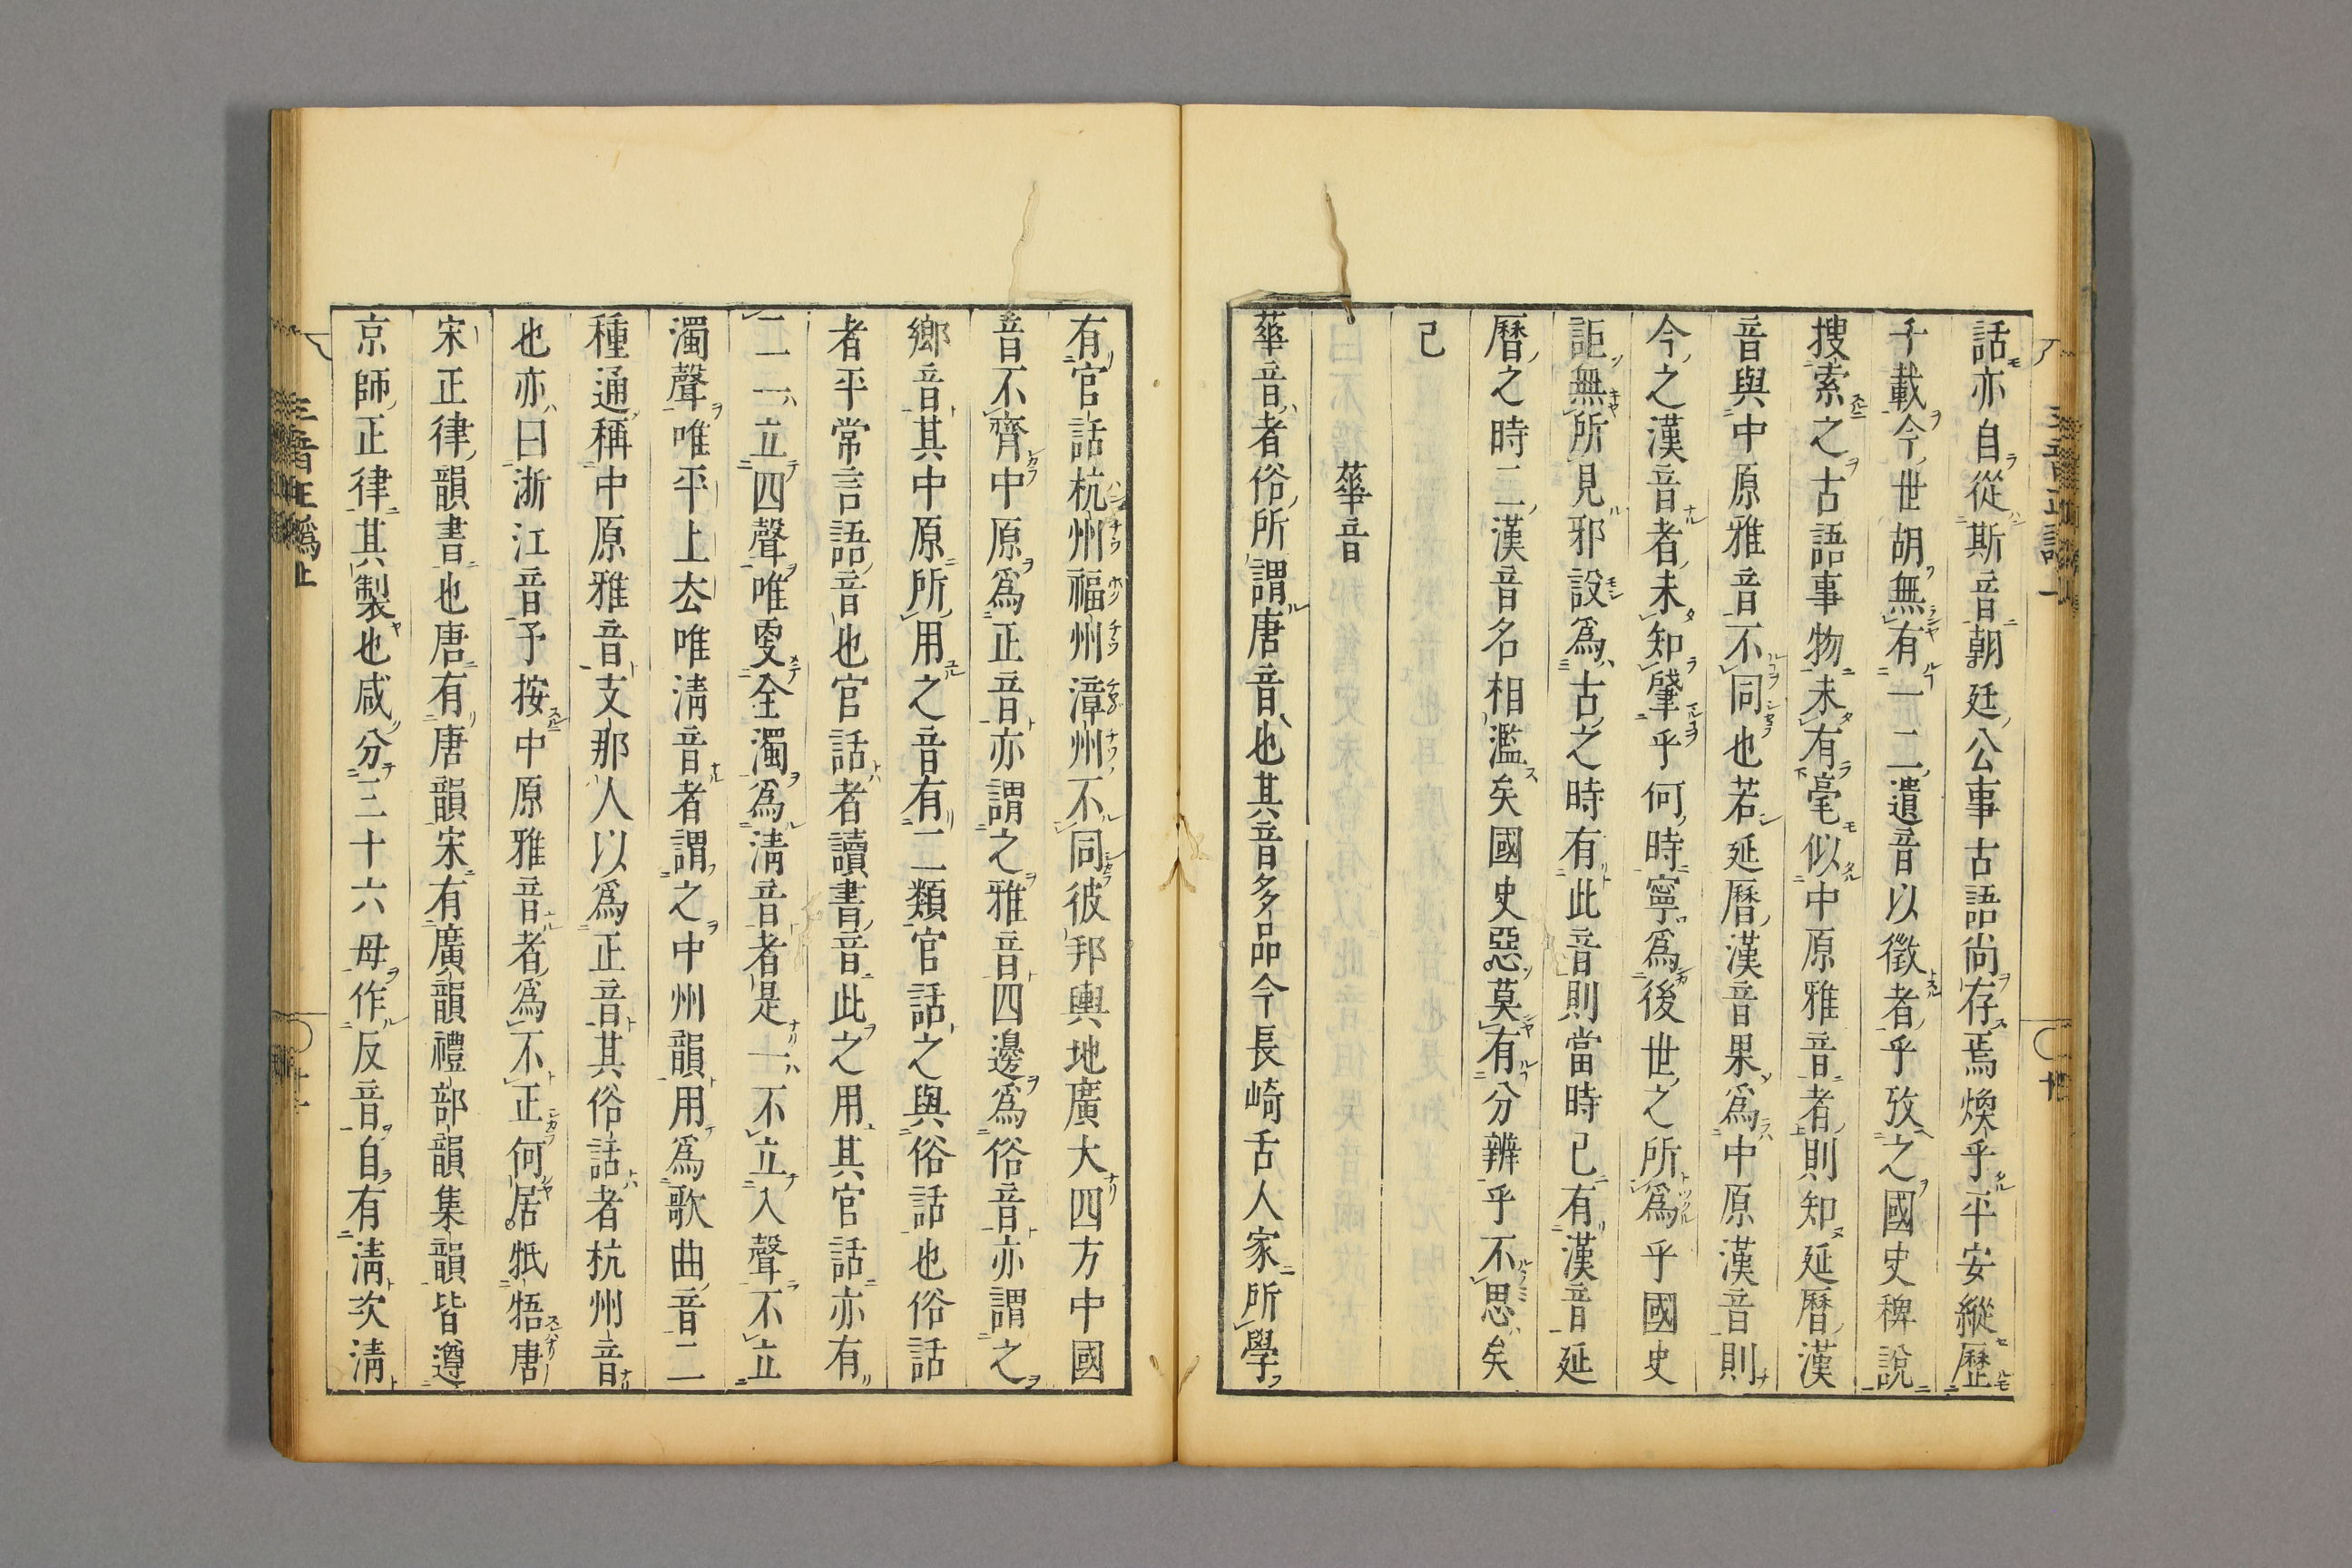 話亦自從斯音朝廷公事古語尚存焉煥乎平安縱歷
千載今世胡無有一二遺音以徵者乎攷之國史稗說
搜索之古語事物未有毫似中原雅音者則知延曆漢
音與中原雅音不同也若延曆漢音果爲中原漢音則
今之漢音者未知肈乎何時寧爲後世之所爲乎國史
詎無所見邪設爲古之時有此音則當時已有漢音延
曆之時二漢音名相濫矣國史惡莫有分辨乎不思矣
已
華音
華音者俗所謂唐音也其音多品今長崎舌人家所學
有官話杭州福州漳州不同彼邦輿地廣大四方中國
音不齊中原爲正音亦謂之雅音四邊爲俗音亦謂之
鄉音其中原所用之音有二類官話之與俗話也俗話
者平常言語音也官話者讀書音此之用其官話亦有
二一立四聲唯更全濁爲淸音者是一不立入聲不立
濁聲唯平上去唯淸音者謂之中州韻用爲歌曲音二
種通稱中原雅音支那人以爲正音其俗話者杭州音
也亦曰浙江音予按中原雅音者爲不正何居牴牾唐
宋正律韻書也唐有唐韻宋有廣韻禮部韻集韻皆遵
京師正律其製也咸分三十六母作反音自有淸次淸
三音正譌上
十一